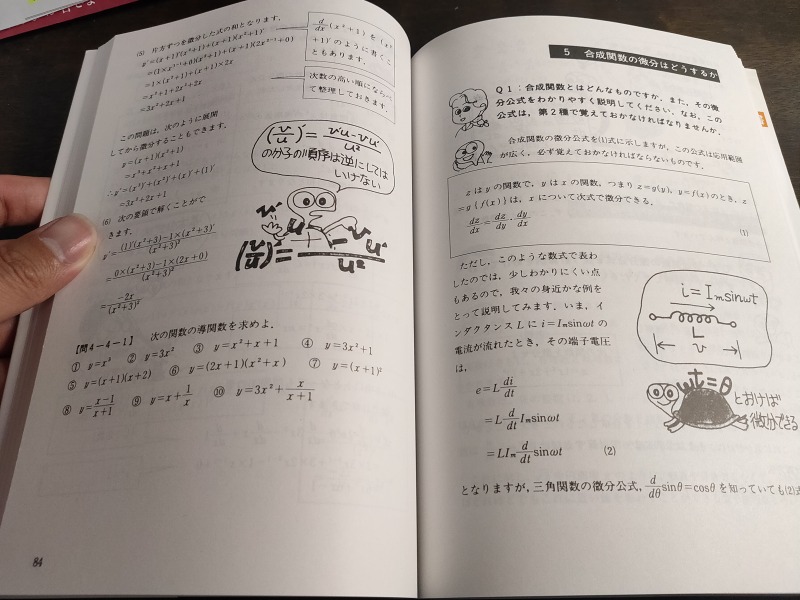 (5) 片方ずつを微分した式の和となります。
y′=(x+1)′(x²+1)+(x+1)(x²+1)′
=(1×x¹⁻¹+0)(x²+1)+(x+1)(2x²⁻¹+0)
=1×(x²+1)+(x+1)×2x
=x²+1+2x²+2x
=3x²+2x+1
d/dx(x²+1)を(x²
+1)′のように書くこ
ともあります。
次数の高い順にならべ
て整理しておきます。
この問題は，次のように展開
してから微分することもできます。
y=(x+1)(x²+1)
=x³+x²+x+1
∴y′=(x³)′+(x²)′+(x)′+(1)′
=3x²+2x+1
(6) 次の要領で解くことがで
きます。
y′=((1)′(x²+3)−1×(x²+3)′)/(x²+3)²
=(0×(x²+3)−1×(2x+0))/(x²+3)²
=−2x/(x²+3)²
(v/u)′=(v′u−vu′)/u²
の分子の順序は逆にしては
いけない
v′ u − v u′
(v/u)′= u²
【問4−4−1】 次の関数の導関数を求めよ．
① y=x³ ② y=3x² ③ y=x²+x+1 ④ y=3x²+1
⑤ y=(x+1)(x+2) ⑥ y=(2x+1)(x²+x) ⑦ y=(x+1)²
⑧ y=(x−1)/(x+1) ⑨ y=x+1/x ⑩ y=3x²+x/(x+1)
84
5 合成関数の微分はどうするか
Q1：合成関数とはどんなものですか．また，その微
分公式をわかりやすく説明してください．なお，この
公式は，第2種で覚えておかなければなりませんか．
合成関数の微分公式を(1)式に示しますが，この公式は応用範囲
が広く，必ず覚えておかなければならないものです．
zはyの関数で，yはxの関数，つまりz=g(y)，y=f(x)のとき，z
=g{f(x)}は，xについて次式で微分できる．
dz/dx=dz/dy·dy/dx (1)
ただし，このような数式で表わ
したのでは，少しわかりにくい点
もあるので，我々の身近かな例を
とって説明してみます．いま，イ
ンダクタンスLにi=Iₘsinωtの
電流が流れたとき，その端子電圧
は，
e=L di/dt
=L d/dt Iₘsinωt
=LIₘ d/dt sinωt (2)
i=Iₘsinωt
L
v
ωt=θ
とおけば
微分できる
となりますが，三角関数の微分公式，d/dθ sinθ=cosθを知っていても(2)式